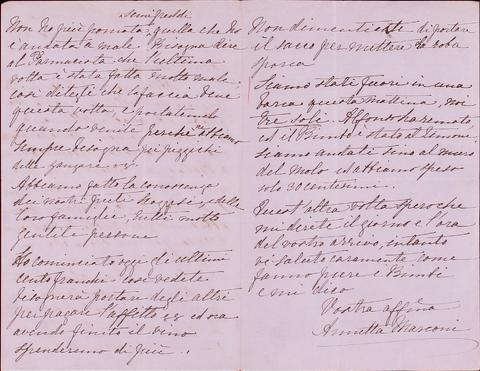 semifreddi
Non ho più pomata, quella che ho
è andata a male. Bisogna dire
al Farmacista che l'ultima
volta è stata fatta molto male
così ditele che la faccia bene
questa volta, e portatemela
quando venite perchè ne abbiamo
sempre bisogna pei pizzichi
delle zanzare
Abbiamo fatto la conoscenza
dei nostri e delle
loro famiglie, tutte molto
gentile persone
Ho cominciato oggi gli ultimi
cento franchi così vedete
bisognerà portare degli altri
per pagare l'affitto ed ora
avendo finito il vino
spenderemo di più.
Non dimenticate di portare
il sacco per mettere la roba
sporca
Siamo stati fuori in una
barca questa mattina, noi
tre soli. Alfonso ha remato
ed il Bimbo è stato al timone.
Siamo andati fino al muro
del Molo ed abbiamo speso
solo 30 centesimi.
Quest'altra volta spero che
mi direte il giorno e l'ora
del vostro arrivo, intanto
vi saluto caramente come
fanno pure i Bimbi
e mi dico
Vostra affma
Annetta Marconi